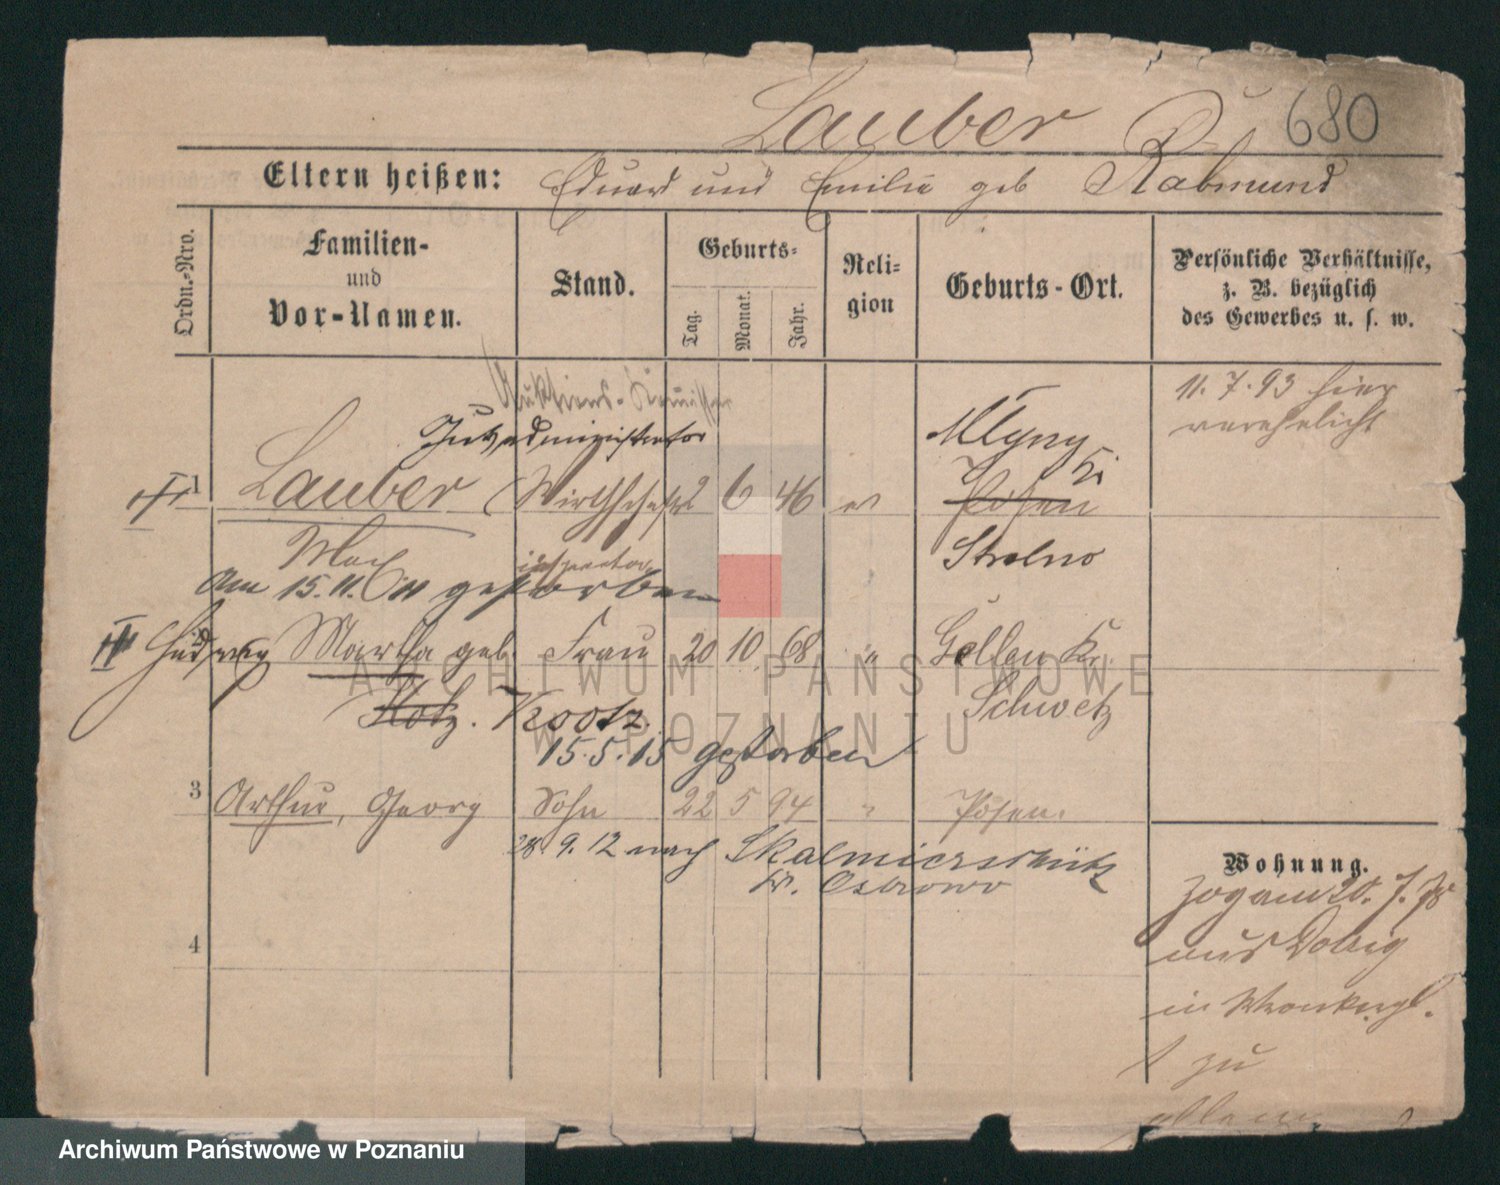 Lauber 680
Eltern heißen: Eduard und Emilie geb Rabmund
Ordn.-Nro.
Familien-
und
Vor-Namen.
Stand.
Geburts-
Tag.
Monat.
Jahr.
Reli-
gion
Geburts-Ort.
Persönliche Verhältnisse,
z. B. bezüglich
des Gewerbes u. s. w.
11. 7. 93 hier
verehelicht
Auktions-
Gutsadministrator
1 Lauber Wirthschafts 2 6 46 ev Posen
Mlyny
Strelno
Max inspector
am 15. 11. 01 gestorben
Hedwig Martha geb. Frau 20 10 68 " Gellen Kr.
Schwetz
Kotz. Kootz.
15. 5. 15 gestorben
3 Arthur, Georg Sohn 22 5 94 " Posen.
28. 9. 12 nach Skalmierschütz
Kr. Ostrowo
4
Wohnung.
zog am 20. 7. 78
aus Dolzig
in
1 zu
ARCHIWUM PAŃSTWOWE
W POZNANIU
Archiwum Państwowe w Poznaniu